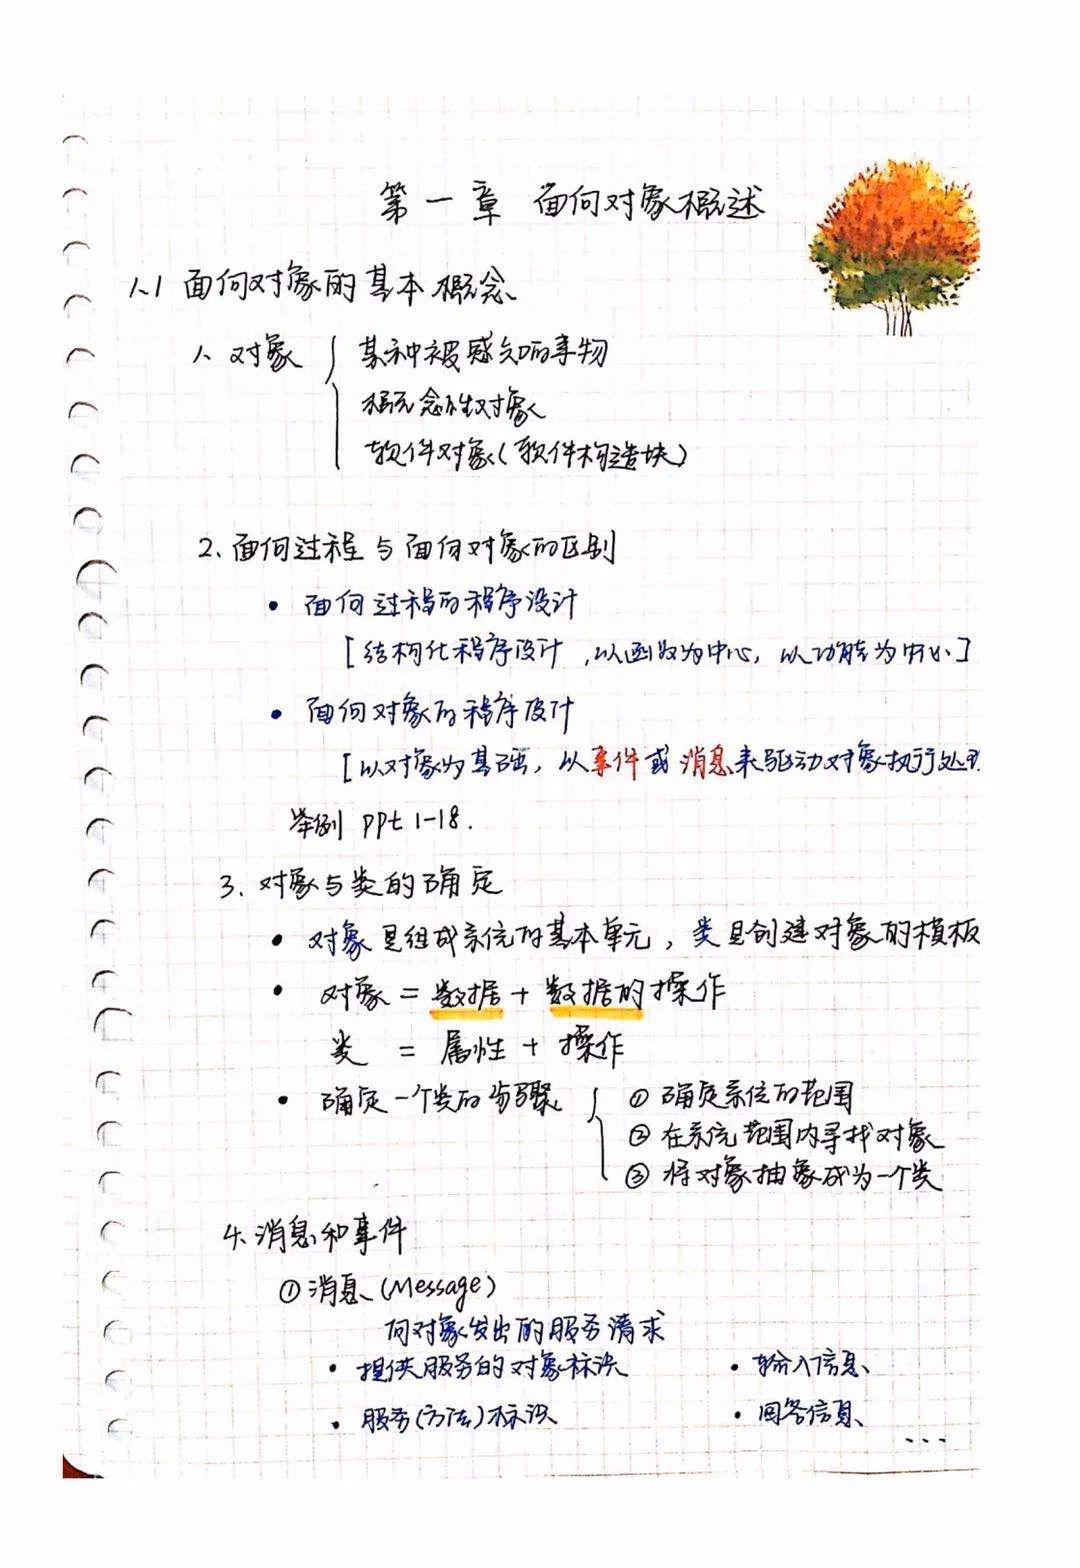 第一章 面向对象概述
1.1 面向对象的基本概念
1. 对象 { 某种被感知的事物
概念性对象
软件对象(软件构造块)
2. 面向过程与面向对象的区别
• 面向过程的程序设计
[结构化程序设计,以函数为中心,以功能为中心]
• 面向对象的程序设计
[以对象为基础,以事件或消息来驱动对象执行处
举例 ppt 1-18.
3. 对象与类的确定
• 对象是组成系统的基本单元,类是创建对象的模板
• 对象 = 数据 + 数据的操作
类 = 属性 + 操作
• 确定一个类的步骤 { ① 确定系统的范围
② 在系统范围内寻找对象
③ 将对象抽象成为一个类
4. 消息和事件
① 消息 (Message)
向对象发出的服务请求
• 提供服务的对象标识 • 输入信息
• 服务(方法)标识 • 回答信息
...